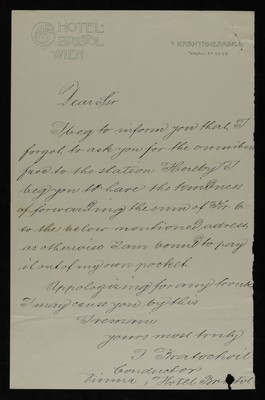 HOTEL
BRISTOL
WIEN
Dear Sir
I beg to inform you that I
forgot to ask you for the omnibus
fare to the station Hereby I
beg you to have the kindness
of forwarding the sum of Kr. 6
to the below mentioned adress
as otherwise I am bound to pay
it out of my own pocket.
Appologising for any trouble
I may cause you by this
I remain
yours most truly
Conductor
Vienna, Hotel Bristol